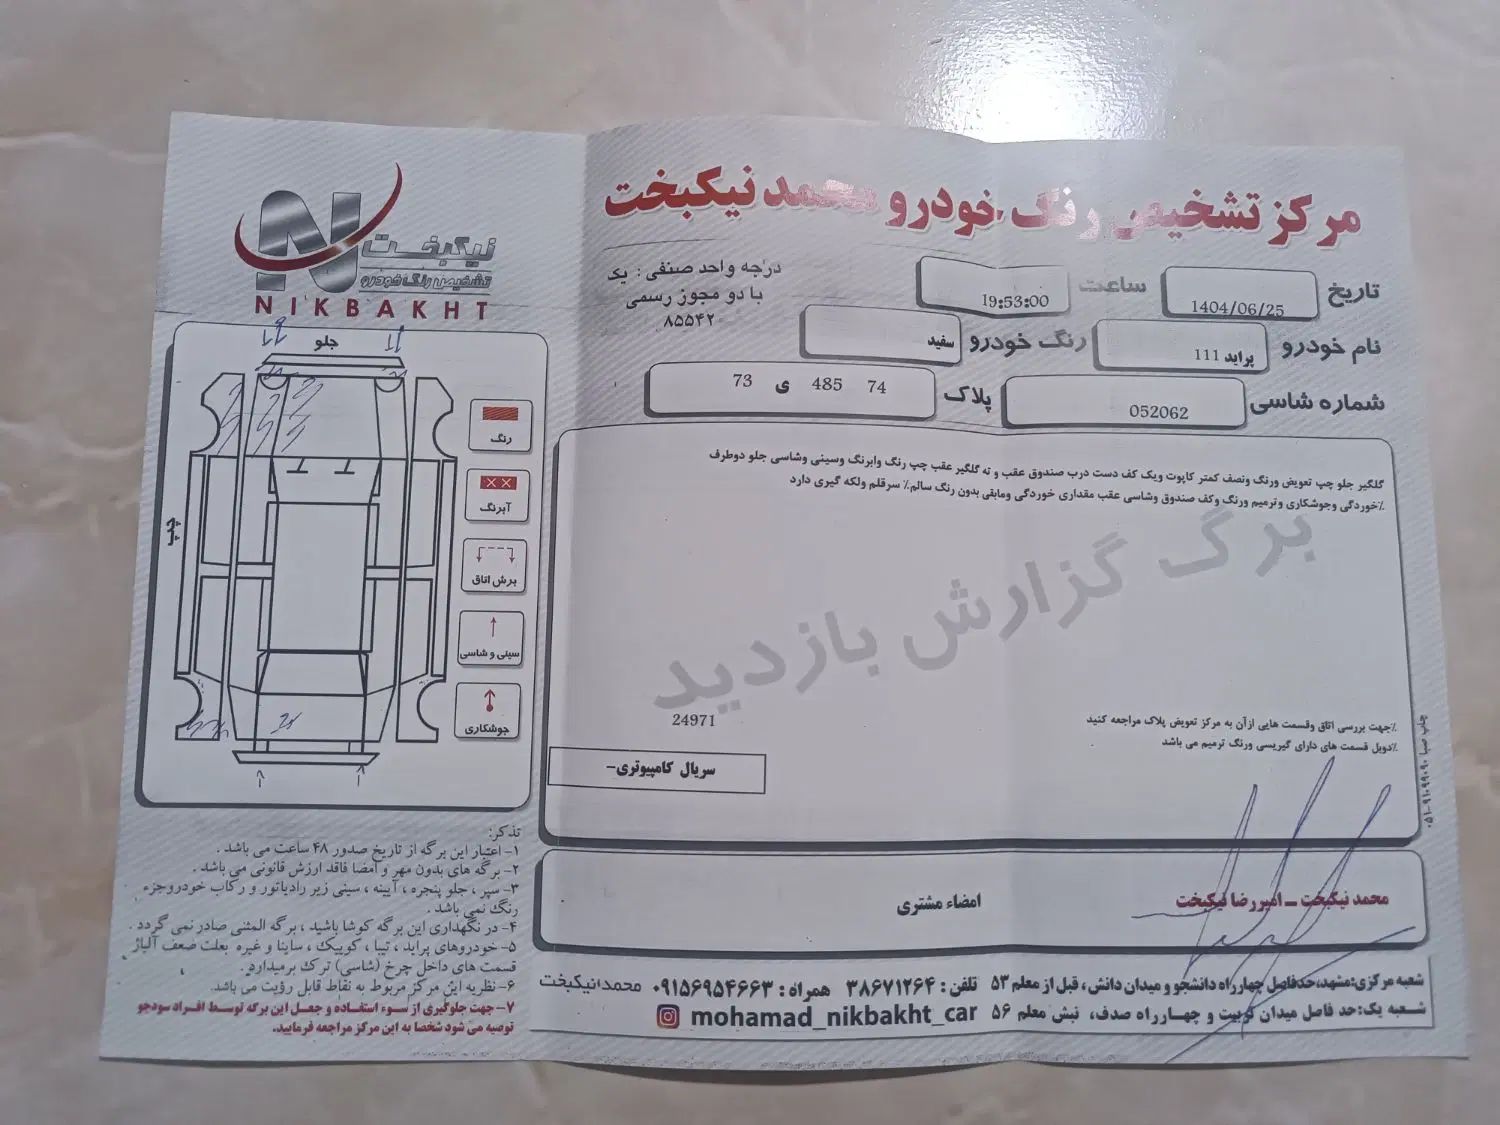 مرکز تشخیص رنگ خودرو محمد نیکبخت
نیکبخت
تشخیص رنگ خودرو
NIKBAKHT
درجه واحد صنفی : یک
با دو مجوز رسمی
۸۵۵۴۲
تاریخ 1404/06/25 ساعت 19:53:00
نام خودرو پراید 111 رنگ خودرو سفید
شماره شاسی 052062 پلاک 73 ی 485 74
گلگیر جلو چپ تعویض ورنگ ونصف کمتر کاپوت ویک کف دست درب صندوق عقب و ته گلگیر عقب چپ رنگ وابرنگ وسینی وشاسی جلو دوطرف
٪خوردگی وجوشکاری وترمیم ورنگ وکف صندوق وشاسی عقب مقداری خوردگی ومابقی بدون رنگ سالم٪ سرقلم ولکه گیری دارد
برگ گزارش بازدید
٪جهت بررسی اتاق وقسمت هایی ازآن به مرکز تعویض پلاک مراجعه کنید
٪دوبل قسمت های دارای گیریسی ورنگ ترمیم می باشد
24971
سریال کامپیوتری-
چاپ صبا ۰۵۱-۹۱۰۹۹۰۹۰
جلو
چپ
رنگ
آبرنگ
برش اتاق
سینی و شاسی
جوشکاری
محمد نیکبخت – امیررضا نیکبخت
امضاء مشتری
تذکر:
۱- اعتبار این برگه از تاریخ صدور ۴۸ ساعت می باشد .
۲- برگه های بدون مهر و امضا فاقد ارزش قانونی می باشد .
۳- سپر ، جلو پنجره ، آیینه ، سینی زیر رادیاتور و رکاب خودروجزء
رنگ نمی باشد .
۴- در نگهداری این برگه کوشا باشید ، برگه المثنی صادر نمی گردد .
۵- خودروهای پراید ، تیبا ، کوییک ، ساینا و غیره بعلت ضعف آلیاژ
قسمت های داخل چرخ (شاسی) ترک برمیدارد .
۶- نظریه این مرکز مربوط به نقاط قابل رؤیت می باشد.
۷- جهت جلوگیری از سوء استفاده و جعل این برگه توسط افراد سودجو
توصیه می شود شخصا به این مرکز مراجعه فرمایید.
شعبه مرکزی:مشهد،حدفاصل چهارراه دانشجو و میدان دانش ، قبل از معلم ۵۳ تلفن : ۳۸۶۷۱۲۶۴ همراه : ۰۹۱۵۶۹۵۴۶۶۳ محمدنیکبخت
شعبه یک:حد فاصل میدان تربیت و چهارراه صدف، نبش معلم ۵۶ mohamad_nikbakht_car